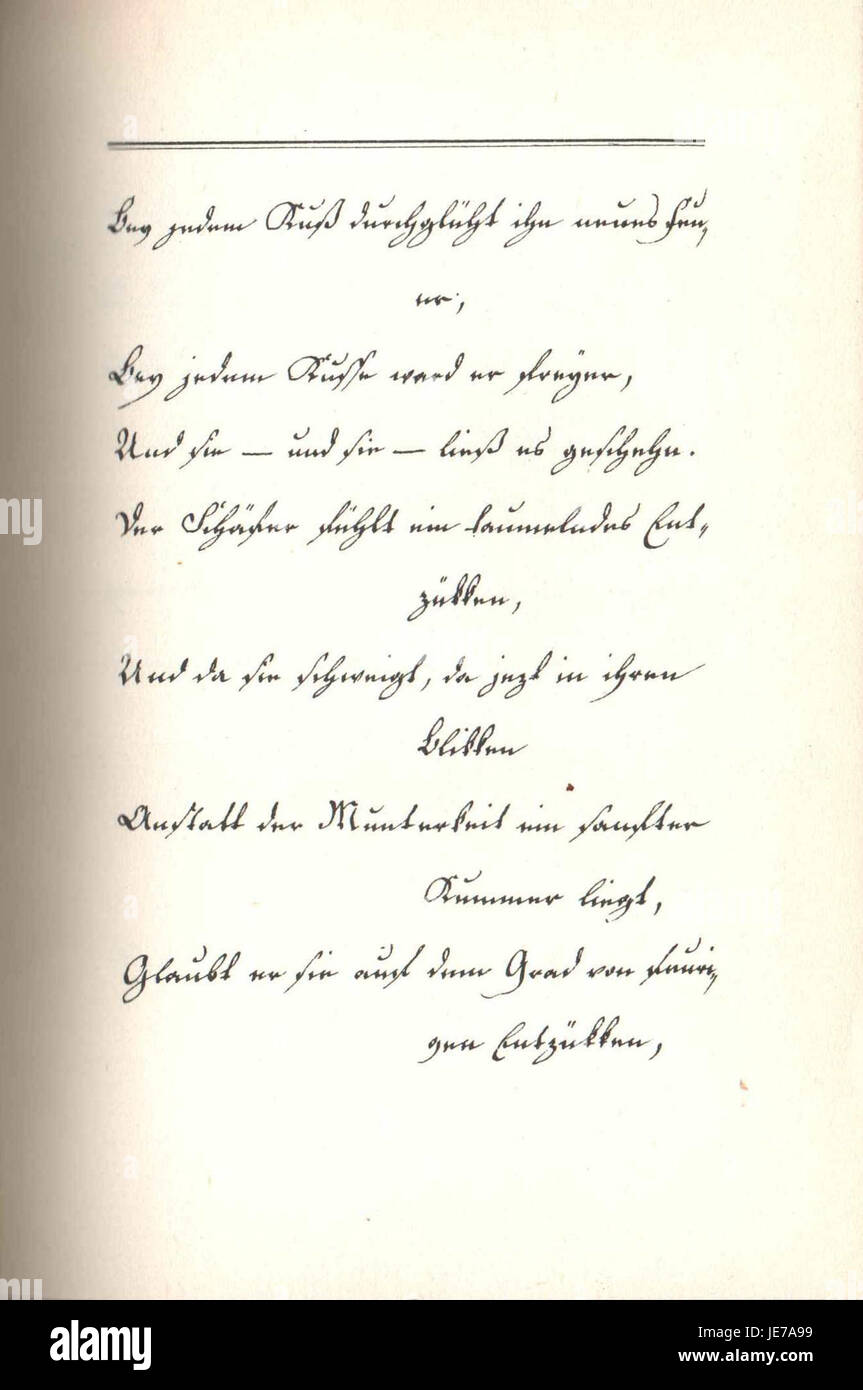 Bey jedem Kuß durchglüht ihn neues Feu-
er,
Bey jedem Kusse ward er freyer,
Und sie — und sie — ließ es geschehn.
Der Schäfer fühlt ein taumelndes Ent-
zükken,
Und da sie schweigt, da jezt in ihren
Blikken
Anstatt der Munterkeit ein sanfter
Kummer liegt,
Glaubt er sie auf dem Grad von feuri-
gen Entzükken,
alamy
Image ID: JE7A99
www.alamy.com